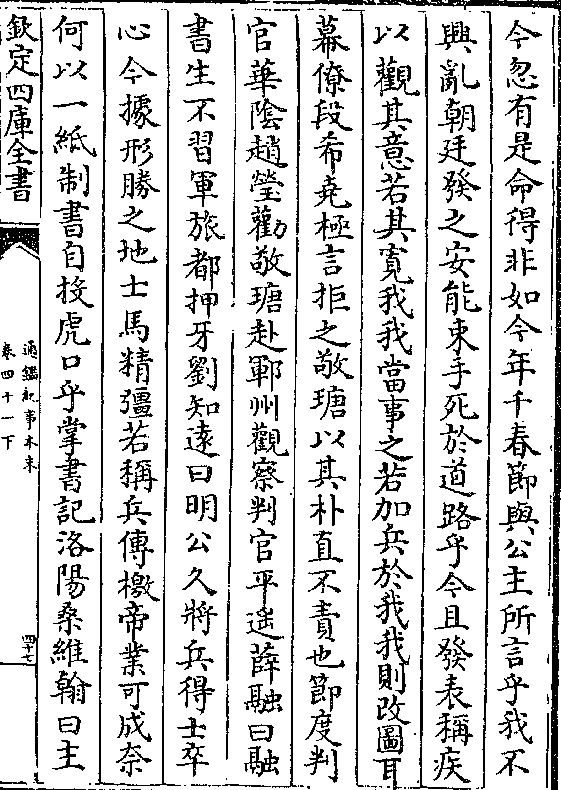 今忽有是命得非如今年千春節與公主所言乎我不
興亂朝廷發之安能束手死於道路乎今且發表稱疾
以觀其意若其寛我我當事之若加兵於我我則改圖耳
幕僚段希堯極言拒之敬瑭以其朴直不責也節度判
官華陰趙瑩勸敬瑭赴鄆州觀察判官平遙薛融曰融
書生不習軍旅都押牙劉知逺曰明公久將兵得士卒
心今據形勝之地士馬精彊若稱兵傳檄帝業可成奈
何以一紙制書自投虎口乎掌書記洛陽桑維翰曰主
欽定四庫全書
通鑑紀事本末
卷四十一下
四十七